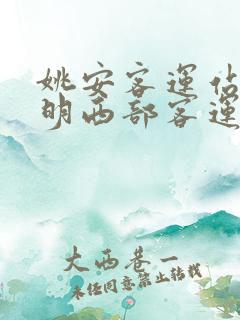 姚安客運佔
明西部客運
大西巷一
未经同意禁止转载